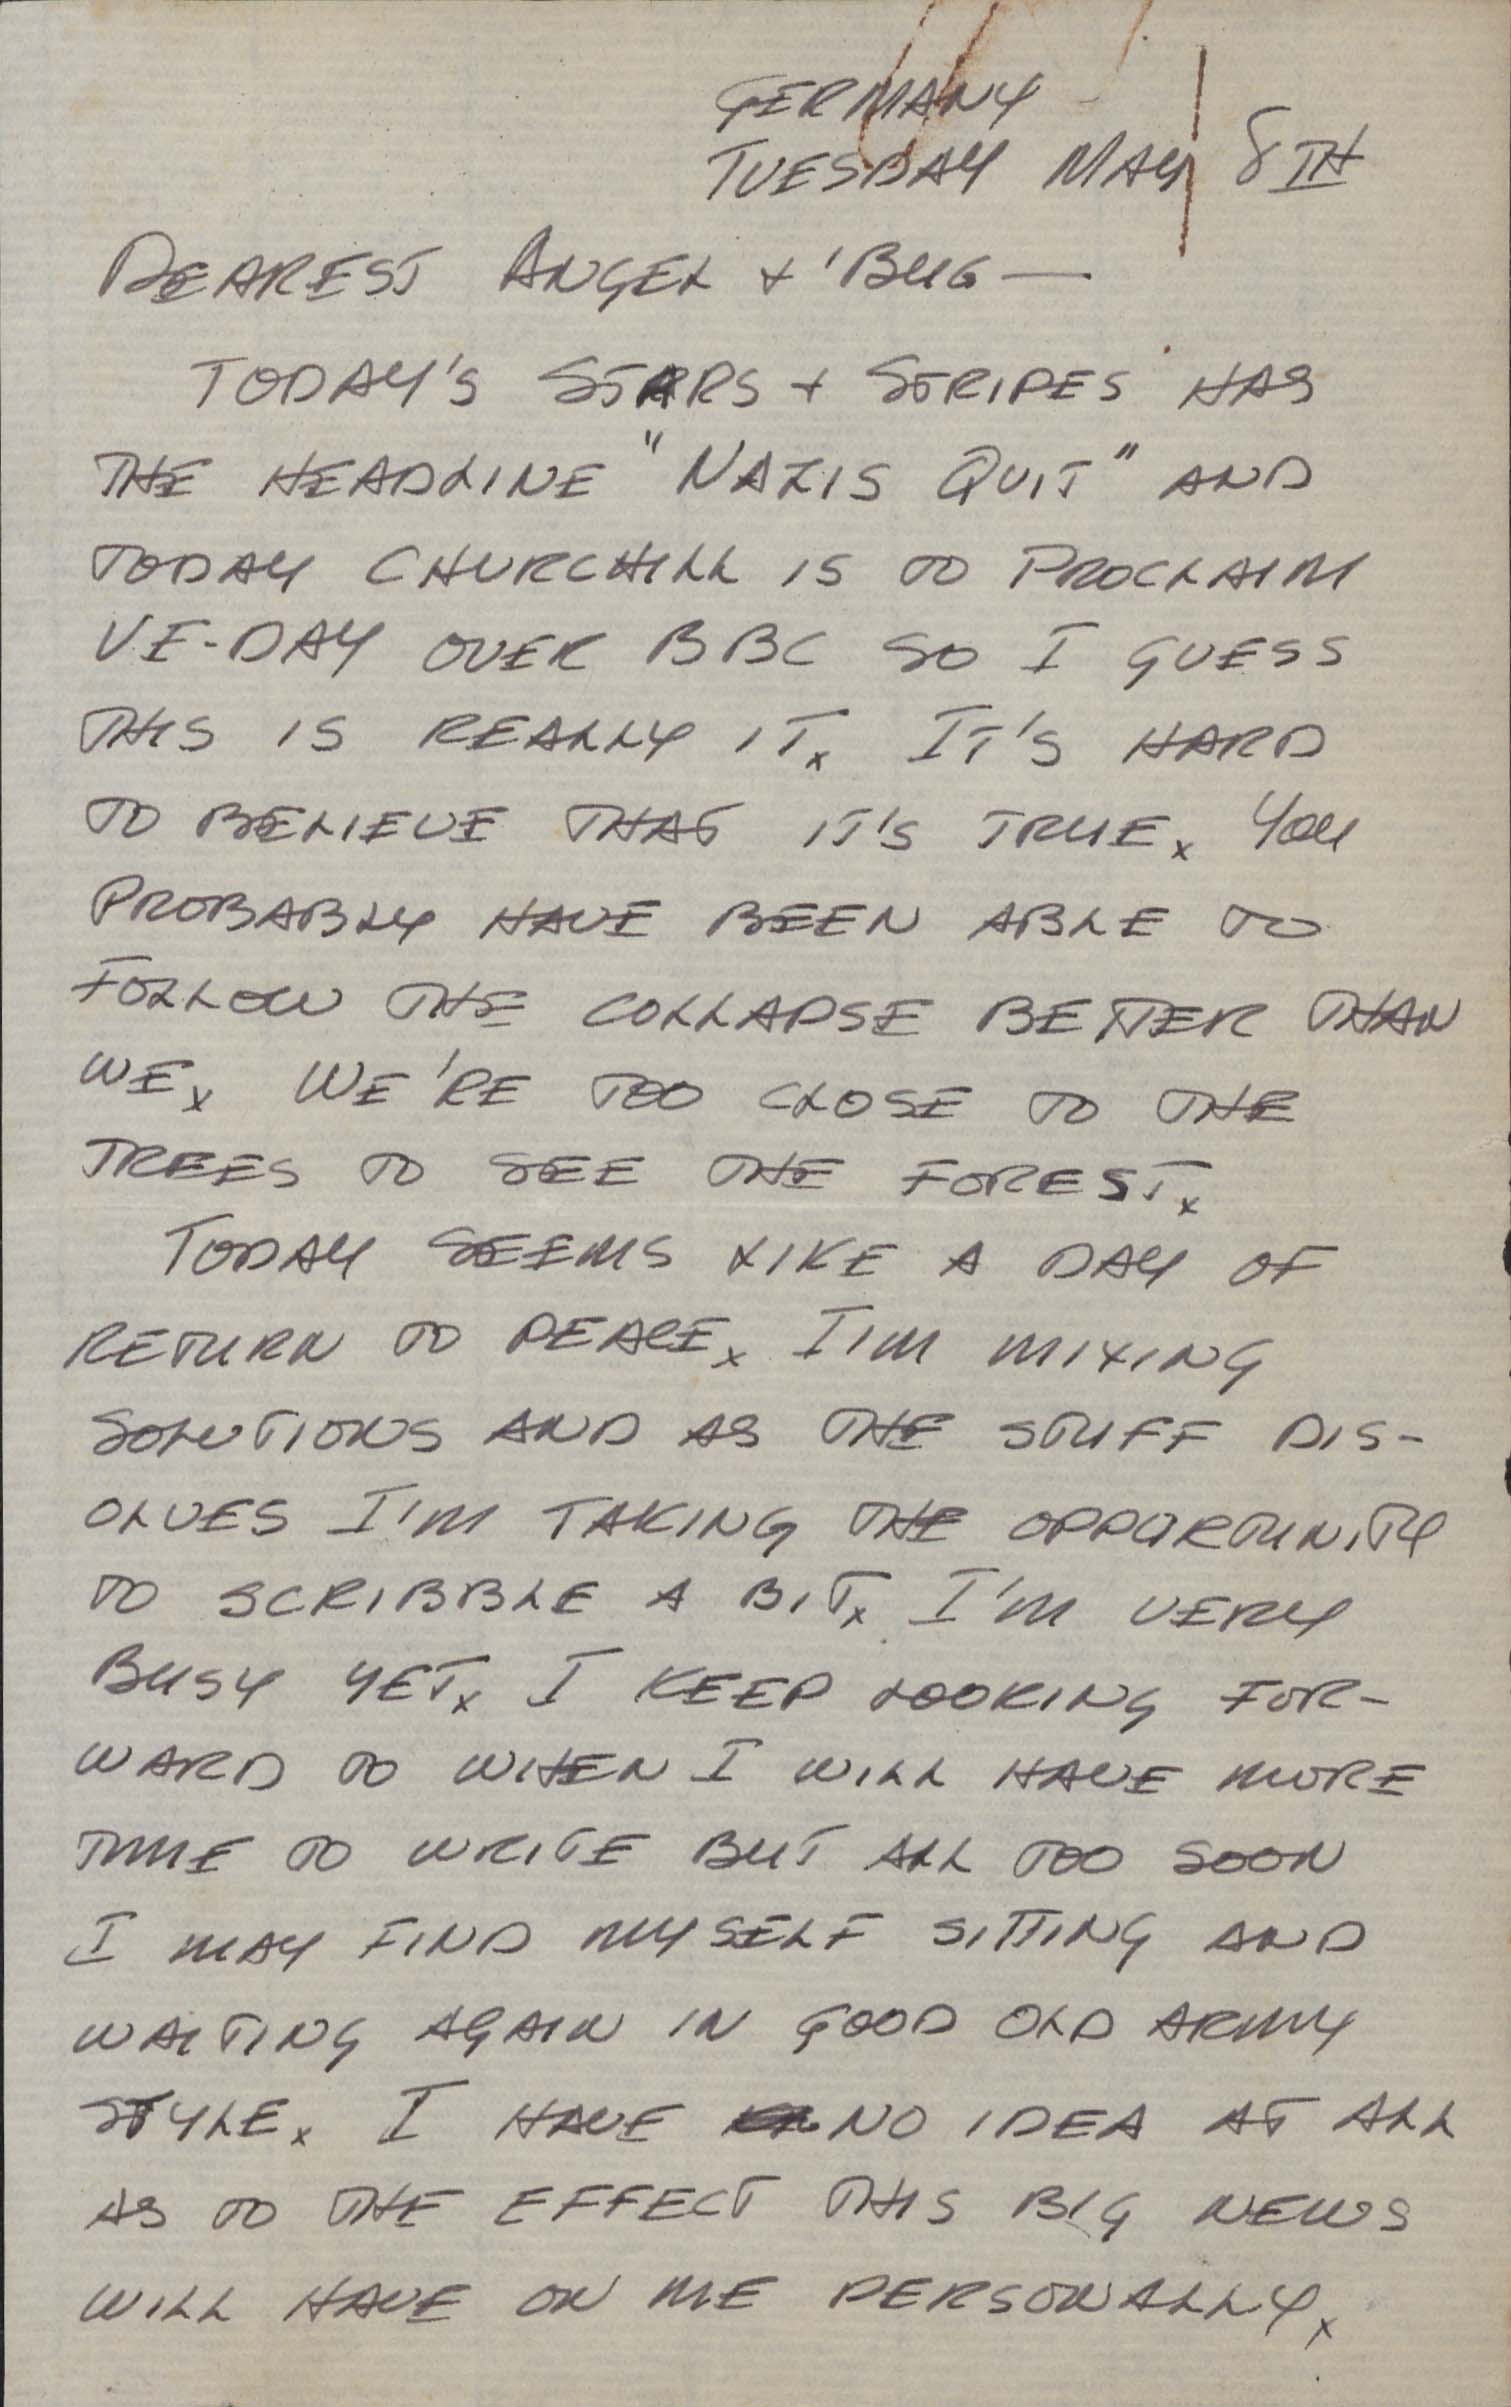 GERMANY
TUESDAY MAY 8TH
DEAREST ANGEL + 'BUG —
TODAY'S STARS + STRIPES HAS
THE HEADLINE "NAZIS QUIT" AND
TODAY CHURCHILL IS TO PROCLAIM
VE-DAY OVER BBC SO I GUESS
THIS IS REALLY IT. IT'S HARD
TO BELIEVE THAT IT'S TRUE. YOU
PROBABLY HAVE BEEN ABLE TO
FOLLOW THE COLLAPSE BETTER THAN
WE. WE'RE TOO CLOSE TO THE
TREES TO SEE THE FOREST.
TODAY SEEMS LIKE A DAY OF
RETURN TO PEACE. I'M MIXING
SOLUTIONS AND AS THE STUFF DIS-
OLVES I'M TAKING THE OPPORTUNITY
TO SCRIBBLE A BIT. I'M VERY
BUSY YET. I KEEP LOOKING FOR-
WARD TO WHEN I WILL HAVE MORE
TIME TO WRITE BUT ALL TOO SOON
I MAY FIND MYSELF SITTING AND
WAITING AGAIN IN GOOD OLD ARMY
STYLE. I HAVE NO IDEA AT ALL
AS TO THE EFFECT THIS BIG NEWS
WILL HAVE ON ME PERSONALLY.